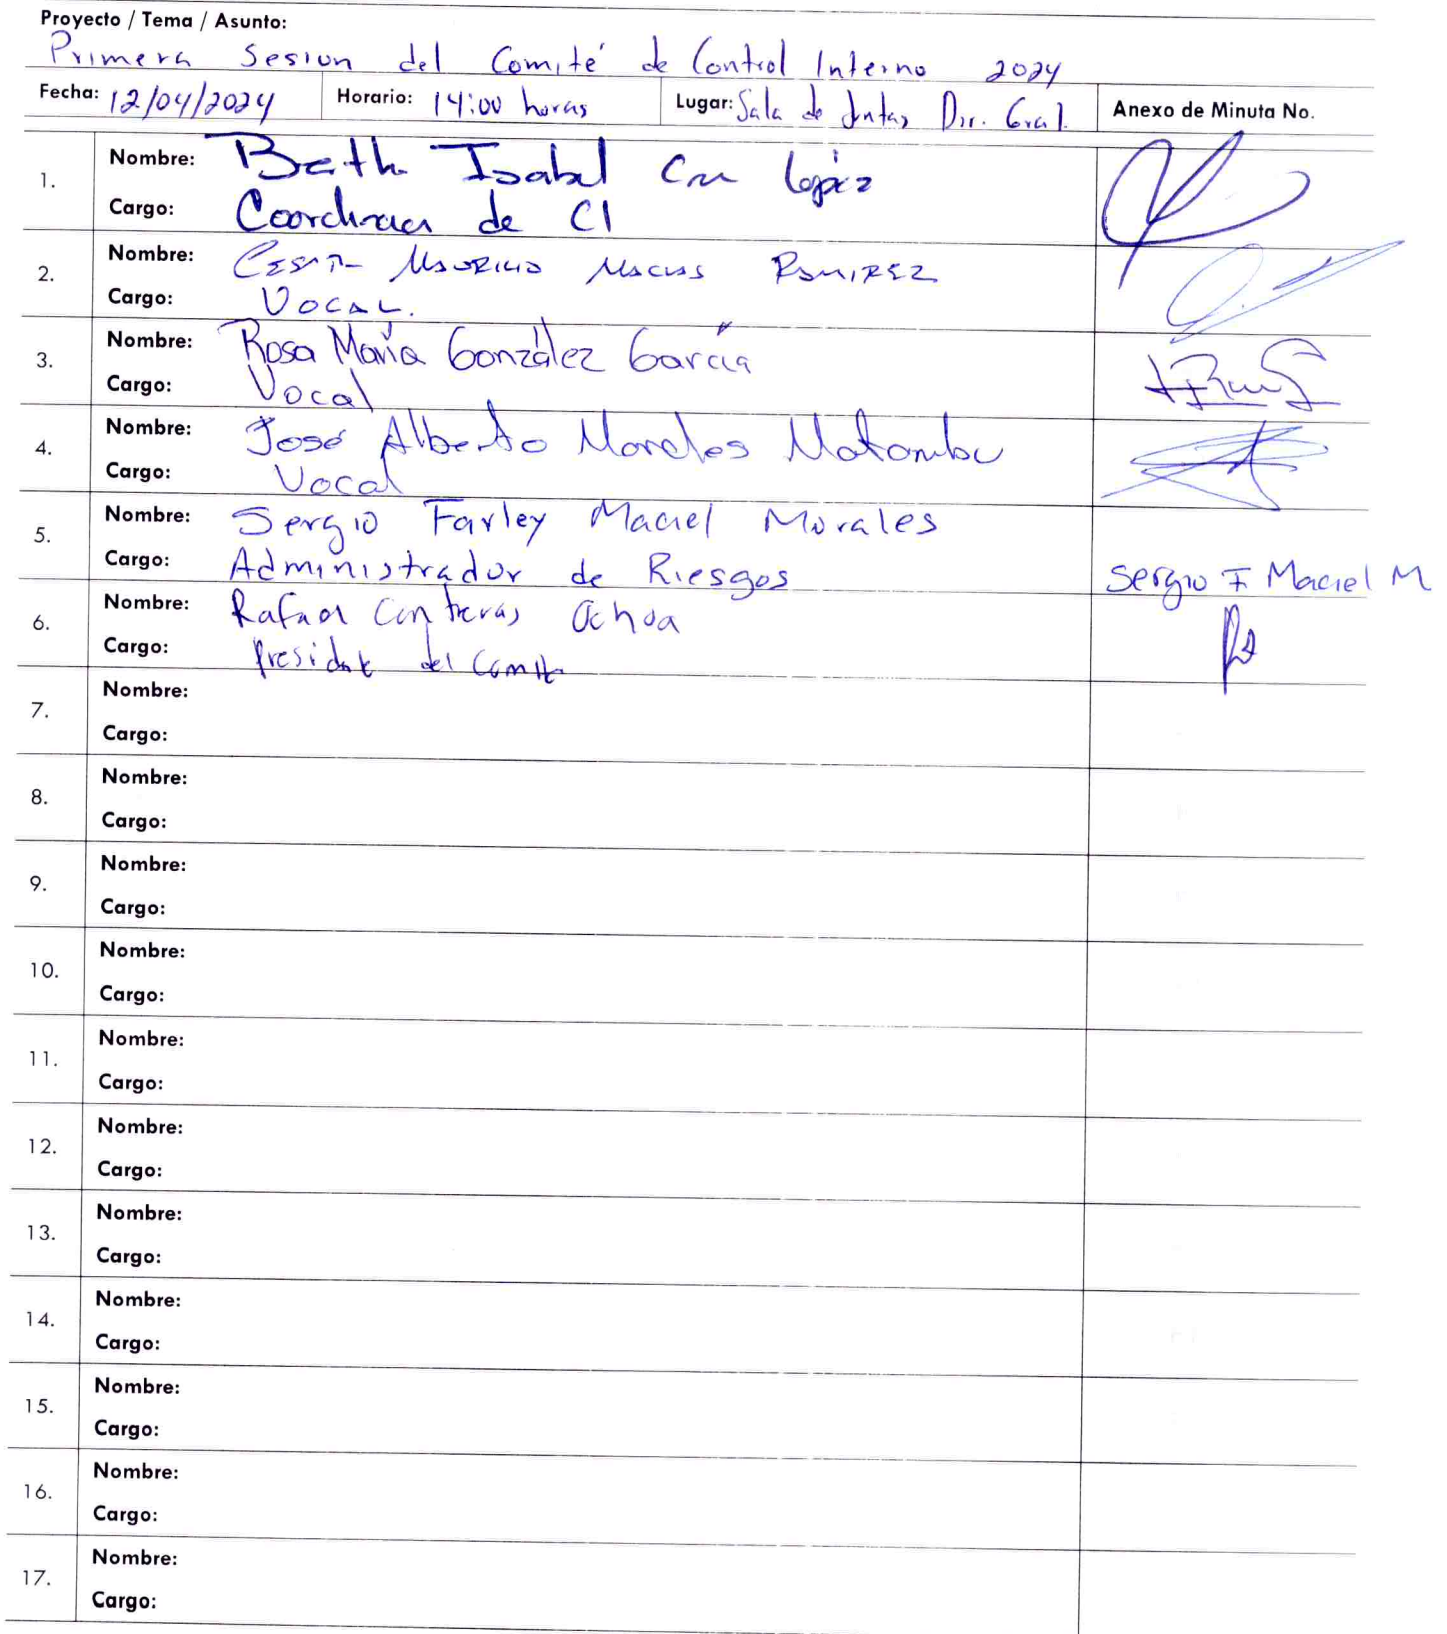 Proyecto / Tema / Asunto:
Primera Sesion del Comité de Control Interno 2024
Fecha: 12/04/2024 Horario: 14:00 horas Lugar: Sala de Juntas Dir. Gral. Anexo de Minuta No.
1. Nombre: Isabel López
Cargo: de CI
2. Nombre: CESAR MAURICIO MACIAS RAMIREZ
Cargo: VOCAL.
3. Nombre: Rosa María González García
Cargo: Vocal
4. Nombre: José Alberto Morales
Cargo: Vocal
5. Nombre: Sergio Farley Maciel Morales
Cargo: Administrador de Riesgos Sergio F Maciel M
6. Nombre: Rafael Contreras Ochoa
Cargo: Presidente del Comite
7. Nombre:
Cargo:
8. Nombre:
Cargo:
9. Nombre:
Cargo:
10. Nombre:
Cargo:
11. Nombre:
Cargo:
12. Nombre:
Cargo:
13. Nombre:
Cargo:
14. Nombre:
Cargo:
15. Nombre:
Cargo:
16. Nombre:
Cargo:
17. Nombre:
Cargo: